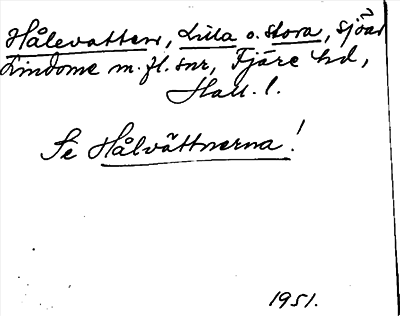 Hålevatten, Lilla o. stora, sjöar
Lindome m.fl. snr, Fjäre hd,
Hall. l.
Se Hålvättnerna!
1951.